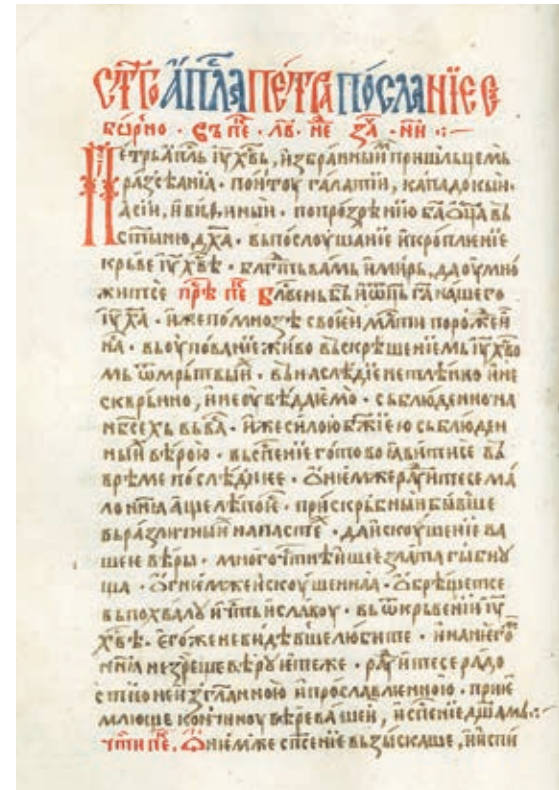 СТ҃ГО А҆ПⷭЛА ПЕТРА ПОСЛАНЇЕ С
бо́рно · съ пе · лв҃ · не за · ни ·:~
Петрь а҆пⷭль і҆у҃ х҃вь, и҆збранны́и҆м пришльцемь
разсѣа́нїа · пон́тоу гала́тїи, кападокы́и·
а҆сїи, и҆ виѳ̾ины́и · по прозрѣ́нїю ба҃ ѡ҆ц҃а вь
ст҃ы́ню дх҃а · вь послоуша́нїе и҆ кропле́нїе
кръ́ве і҆у҃ х҃вѣ · блгⷣть вамь и҆ ми́рь, да оу҆мно́
житсе прѣ пе Блⷭвень бь҃ и҆ ѡ҆ць га҃ на́шего
і҆у҃ х҃а · и҆же по мно́зѣ свое́и мⷭти порожеи
на · вь оу҆пова́нїе жи́во вьскрⷭ҇ше́нїемь і҆у҃ х҃во
мь ѿ мрь́твыи · вь наслѣ́дїе нетлѣ́нно и҆ не
сквръ́нно, и҆ неоу҆веда́ем̾о · съблюде́нно на
нб҃сехь вь ва · и҆же си́лою бж҃їею съблюдеи
ныи вѣ́рою · вь сп҃се́нїе гото́во ꙗ҆ви́тисе вь
врѣ́ме послѣ́днее · ѡ҆ не́мже ра́дꙋи́тесе ма́
ло нн҃ꙗ а҆ще лѣ́по е҆ · приско́рбны бы́вше
вь разли́чныи напа́сте · да и҆скоуше́нїе ва
шее вѣ́ры · мно́го чⷭтнѣ́йшее зла́та гы́бнꙋ
ща · ѡ҆гне́мже и҆скоуше́нна · ѡ҆брѣ́щетсе
вь похва́лꙋ и҆ чⷭть и҆ сла́воу · вь ѿкрьве́нїи і҆у҃
х҃вѣ · е҆го́же не ви́дѣвше лю́бите · и҆ нань е҆го
нн҃ꙗ не зре́ще вѣ́рꙋете же · ра́дꙋи́тесе ра́до
стїю не и҆згла́нною и҆ просла́вленною · прие́
млюще кон̾чи́ноу вѣ́ре ва́шеи, и҆ сп҃се́нїе дш҃амь ·:~
чти пе. Ѡ҆ не́мже сп҃се́нїе вьзы́скаше, и҆ и҆спи